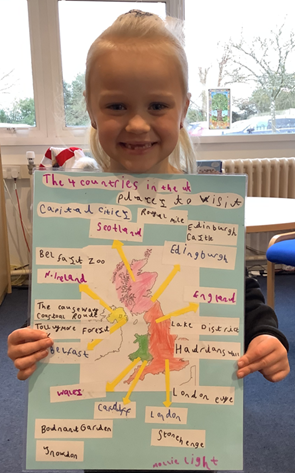 The 4 countries in the uk
places to visit
Capital Cities
Royal mile
Edinburgh
Castle
Scotland
Belfast zoo
Edingburgh
N.Ireland
England
The causeway
Coastal Route
Lake District
Tollymore Forest
Belfast
Hadrians Wall
London eye
Wales
Cardiff
London
Bodnand Garden
Stonehenge
Snowdon
Light